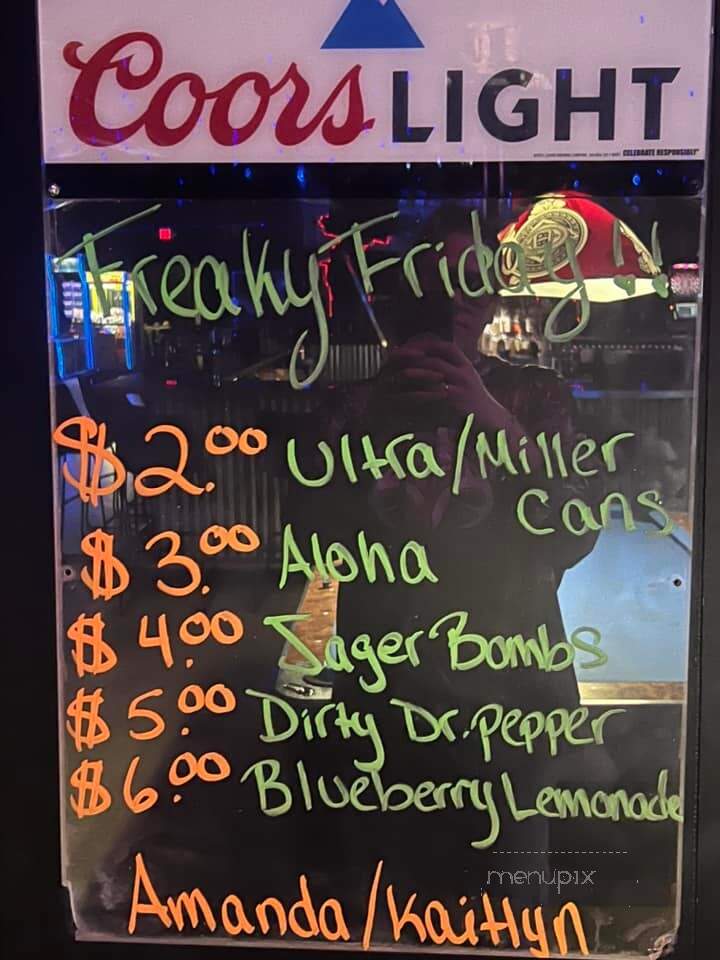 Coors LIGHT
CELEBRATE RESPONSIBLY
Freaky Friday!!
$2.00 Ultra/Miller
Cans
$3.00 Aloha
$4.00 Jager Bombs
$5.00 Dirty Dr. Pepper
$6.00 Blueberry Lemonade
menupix
Amanda/Kaitlyn